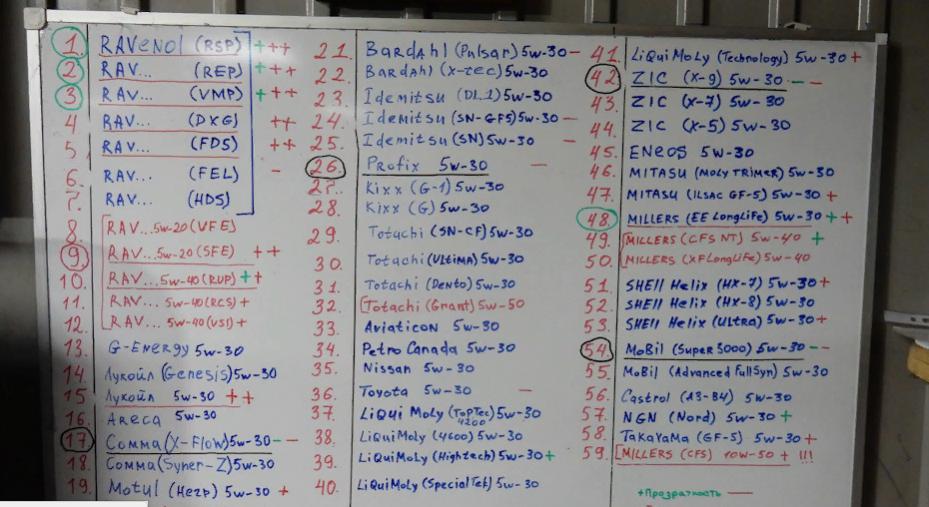 1. RAVENOL (RSP) +++
2. RAV... (REP) +++
3. RAV... (VMP) +++
4 RAV... (DXG) ++
5 RAV... (FDS) ++
6. RAV... (FEL) -
7. RAV... (HDS)
8. RAV...5w-20 (VFE)
9. RAV...5w-20 (SFE) ++
10. RAV...5w-40 (RUP) ++
11. RAV... 5w-40 (RCS) +
12. RAV... 5w-40 (VSI) +
13. G-ENERGY 5w-30
14. Лукойл (Genesis) 5w-30
15 Лукойл 5w-30 ++
16. Areca 5w-30
17 Comma (X-Flow) 5w-30 --
18. Comma (Syner-Z) 5w-30
19. Motul (Неzр) 5w-30 +
21. Bardahl (Pulsar) 5w-30 -
22. Bardahl (X-tec) 5w-30
23. Idemitsu (DL1) 5w-30
24. Idemitsu (SN-GF5) 5w-30 -
25. Idemitsu (SN) 5w-30 -
26. Profix 5w-30 -
27. Kixx (G-1) 5w-30
28. Kixx (G) 5w-30
29. Totachi (SN-CF) 5w-30
30. Totachi (ULtiMA) 5w-30
31. Totachi (Dento) 5w-30
32. Totachi (Grant) 5w-50
33. Aviaticon 5w-30
34. Petro Canada 5w-30
35. Nissan 5w-30
36. Toyota 5w-30 -
37. LiQui Moly (TopTec 4200) 5w-30
38. LiQui Moly (4600) 5w-30
39. LiQui Moly (Hightech) 5w-30 +
40. LiQui Moly (Special Tek) 5w-30
41. LiQui Moly (Technology) 5w-30 +
42. ZIC (X-9) 5w-30 --
43. ZIC (X-7) 5w-30
44. ZIC (X-5) 5w-30
45. ENEOS 5w-30
46. MITASU (MOLY TRiMER) 5w-30
47. MITASU (ILSAC GF-5) 5w-30 +
48. MILLERS (EE LongLife) 5w-30 ++
49. MILLERS (CFS NT) 5w-40 +
50. MILLERS (XF LongLife) 5w-40
51. SHEll Helix (HX-7) 5w-30 +
52. SHEll Helix (HX-8) 5w-30
53. SHEll Helix (ULtra) 5w-30 +
54. MoBil (Super 3000) 5w-30 --
55. MoBil (Advanced FullSyn) 5w-30
56. Castrol (A3-B4) 5w-30
57. NGN (Nord) 5w-30 +
58. TAKAYAMA (GF-5) 5w-30 +
59. MILLERS (CFS) 10w-50 + !!!
+ Прозрачность -